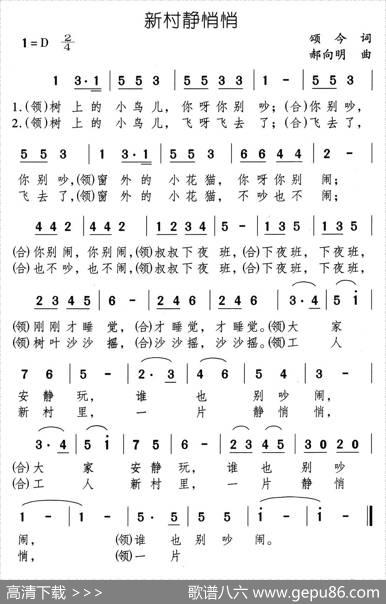 新村静悄悄
1=D 2/4
颂今 词
郝向明 曲
1 3·1 | 5 5 3 | 5 5 3 5 3 | 1 - | 5 5 3 |
1.(领)树上的小鸟儿,你呀你别吵;(合)你别吵,
2.(领)树上的小鸟儿,飞呀飞去了;(合)飞去了,
5 5 3 | 1 3·1 | 5 5 3 | 6 6 4 4 | 2 - |
你别吵,(领)窗外的小花猫,你呀你别闹;
飞去了,(领)窗外的小花猫,不吵也不闹;
4 4 2 | 4 4 2 | 1 2 3 4 | 5 - | 1 3 5 | 1 3 5 |
(合)你别闹,你别闹,(领)叔叔下夜班,(合)下夜班,下夜班,
(合)也不吵,也不闹,(领)叔叔下夜班,(合)下夜班,下夜班,
2 3 4 5 | 6 - | 2 4 6 | 2 4 6 | 3·4 | 5 i |
(领)刚刚才睡觉,(合)才睡觉,才睡觉。(领)大家
(领)树叶沙沙摇,(合)沙沙摇,沙沙摇。(领)工人
7 6 | 5 - | 2·3 | 4 6 | 5 4 | 3 - |
安静玩,谁也别吵闹,
新村里,一片静悄悄,
3·4 | 5 i | 7 6 | 5 - | 2 3 4 5 | 3 0 2 0 |
(合)大家安静玩,谁也别吵
(合)工人新村里,一片静悄
1 - | 1 - | 5·5 | 5 5 | i 0 ‖
闹,(领)谁也别吵闹。
悄,(领)一片
高清下载 >>>
歌谱八六 www.gepu86.com